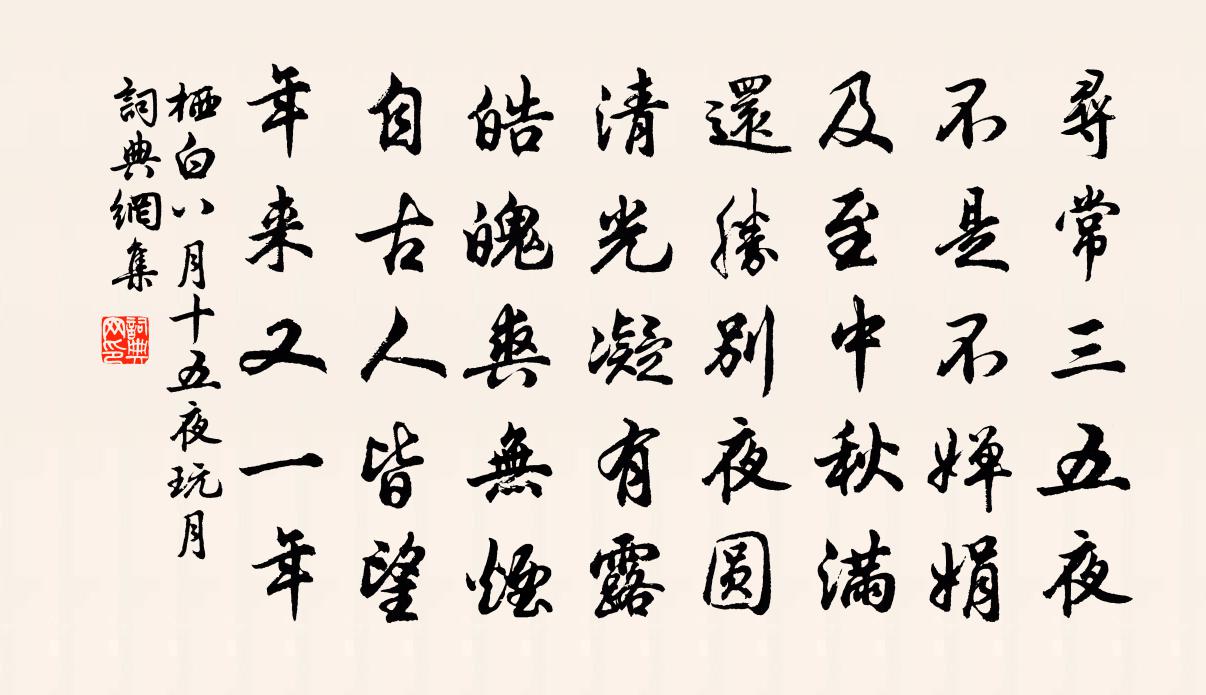 尋常三五夜
不是不婵娟
及至中秋滿
還勝別夜圆
清光凝有露
皓魄爽無煙
自古人皆望
年来又一年
栖白八月十五夜玩月
詞典網集
詞典网印